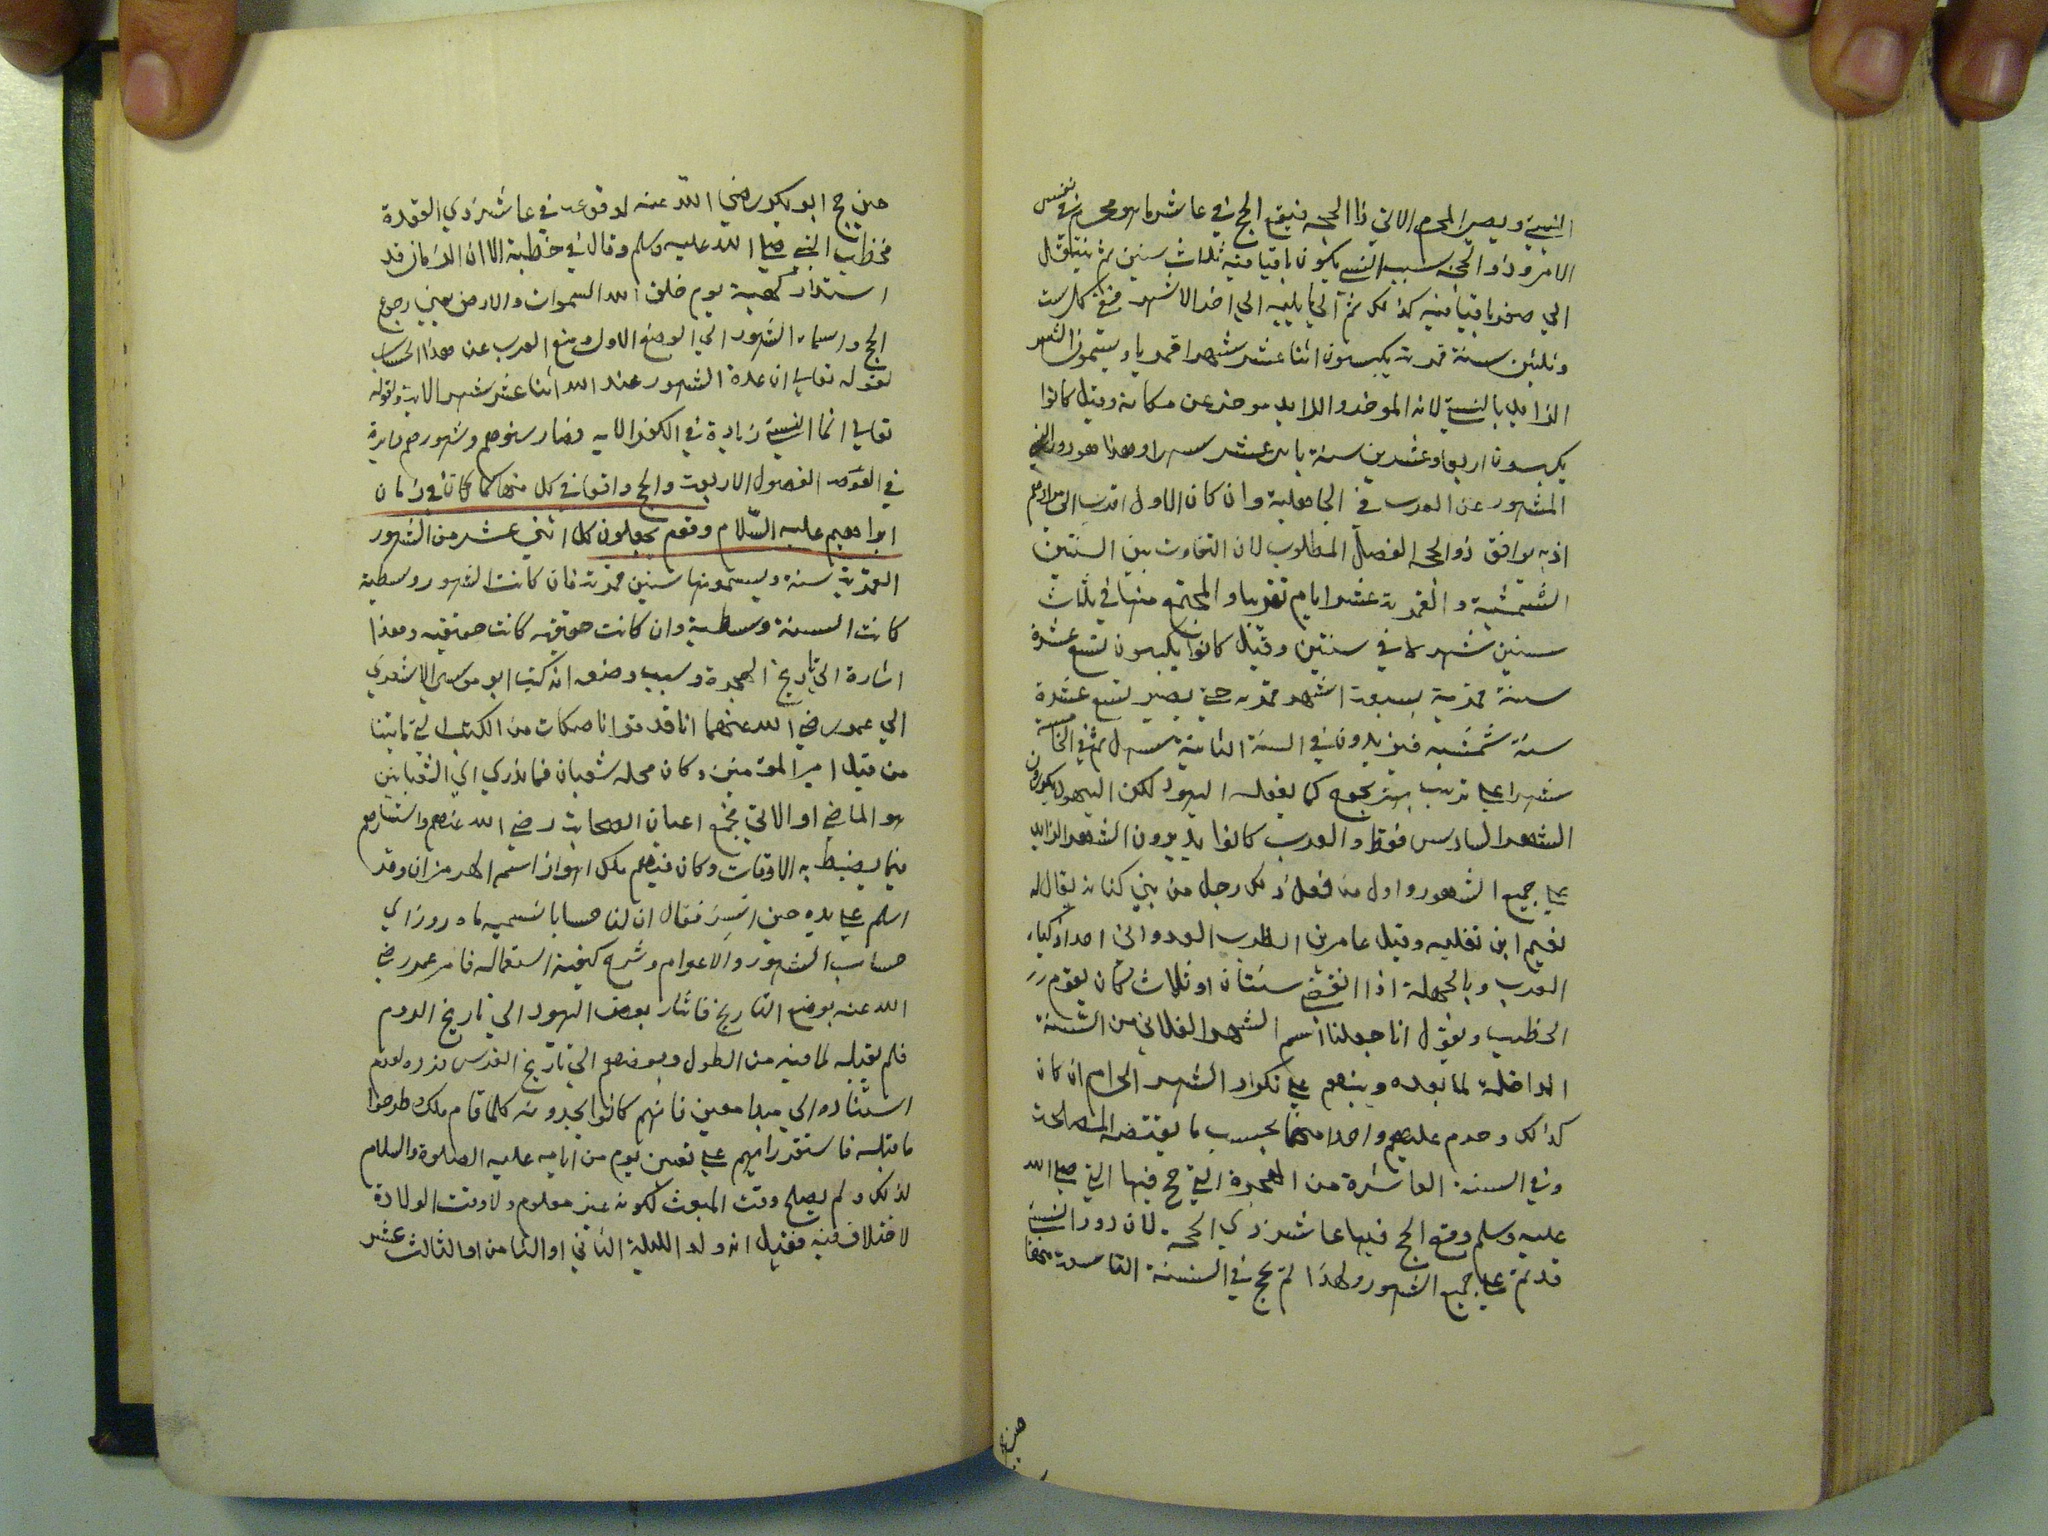 النسيئ ويصير المحرم الاتي ذا الحجه فيقع الحج في عاشر ما هو محرم في نفس
الامر وذو الحجه بسبب النسيئ يكون باقيا فيه ثلاث سنين ثم ينتقل
الي صفر باقيا فيه كذلك ثم الي ما يليه الي اخر الاشهر ففي كل ست
وثلثين سنة قمرية يكبسون اثنا عشر شهرا قمريا ويسمون الشهر
الزايد بالنسيئ لانه الموخر والزايد موخر عن مكانه وقيل كانوا
يكبسون اربعا وعشرين سنة باثني عشر شهرا وهذا هو دور النسيئ
المشهور عن العرب في الجاهلية وان كان الاول اقرب الي مرادهم
اذ به يوافق ذو الحجه الفصل المطلوب لان التفاوت بين السنتين
الشمسية والقمرية عشرة ايام تقريبا والمجتمع منها في ثلاث
سنين شهر لا في سنتين وقيل كانوا يكبسون تسع عشرة
سنة قمرية بسبعة اشهر قمرية حتي يصير تسع عشرة
سنة شمسية فيزيدون في السنة الثانية شهرا ثم في الخامسة
شهرا علي ترتيب بهزيجوج كما يفعله اليهود لكن اليهود يكررون
الشهر السادس فقط والعرب كانوا يديرون الشهر الزايد
علي جميع الشهور واول من فعل ذلك رجل من بني كنانة يقال له
نعيم ابن ثعلبه وقيل عامر بن الظرب العدواني احد اذكياء
العرب وبالجملة اذا انقضي سنتان او ثلاث كان يقوم
الخطيب ويقول انا جعلنا اسم الشهر الفلاني من السنة
الداخلة لما بعده وينبههم علي تكرار الشهر الحرام ان كان
كذالك وحرم عليهم واحدا منهما بحسب ما يقتضيه المصلحة
وفي السنة العاشرة من الهجرة التي حج فيها النبي صلي الله
عليه وسلم وقع الحج فيها عاشر ذي الحجه لان دور النسيئ
قد تم علي جميع الشهور ولهذا لم يحج في السنة التاسعة منها
حين
حين حج ابو بكر رضي الله عنه لوقوعه في عاشر ذي القعدة
فخطب النبي صلي الله عليه وسلم وقال في خطبة الا ان الزمان قد
استدار كهيئة يوم خلق الله السموات والارض يعني رجوع
الحج واسماء الشهور الي الوضع الاول ومنع العرب عن هذا الحساب
بقوله تعالي ان عدة الشهور عند الله اثنا عشر شهر الايه وقوله
تعالي انما النسيئ زيادة في الكفر الايه فصار سنوهم وشهورهم دايرة
في الفصول الاربعة والحج واقعا في كل منها كما كان في زمان
ابراهيم عليه السلام وقوم يجعلون كل اثني عشر من الشهور
القمرية سنة ويسمونها سنين قمرية فان كانت الشهور وسطية
كانت السنة وسطية وان كانت حقيقيه كانت حقيقيه وهذا
اشارة الي تاريخ الهجرة وسبب وضعه انه كتب ابو موسي الاشعري
الي عمر رضي الله عنهما انا قد قرانا صكا من الكتب التي تاتينا
من قبل امير المؤمنين وكان محله شعبان فما ندري اي الشعبانين
هو الماضي او الاتي فجمع اعيان الصحابة رضي الله عنهم واستشارهم
فيما يضبط به الاوقات وكان فيهم ملك اهواز اسمه الهرمزان وقد
اسلم علي يده حين اسر فقال ان لنا حسابا نسميه ماه روز اي
حساب الشهور والاعوام وشرح كيفية استعماله فامر عمر رضي
الله عنه بوضع التاريخ فاشار بعض اليهود الي تاريخ الروم
فلم يقبله لما فيه من الطول وبعضهم الي تاريخ الفرس فرده لعدم
استناده الي مبدا معين فانهم كانوا يجددونه كلما قام ملك طرحوا
ما قبله فاستقر رايهم علي تعيين يوم من ايامه عليه الصلوة والسلام
لذلك ولم يصلح وقت المبعث لكونه غير معلوم ولا وقت الولادة
لاختلاف فيه فقيل انه ولد الليلة الثاني او الثامن او الثالث عشر